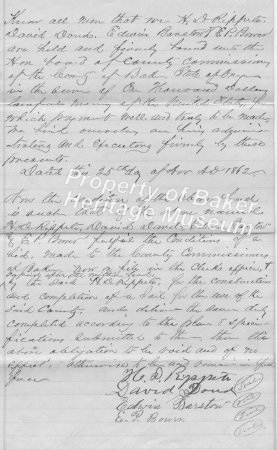 Know all men that we H. D Rippeto
David Doud. Edwin Barstow & E P. Bower
are held and firmly bound unto the
Hon board of County Commissioners
of the County of Baker State of Oregon
in the sum of One Thousand Dollars
lawful money of the United States for
which payment well and truly to be made
We bind ourselves our heirs adminis-
trators and Executors firmly by these
presents.
Dated this 25th day of Nov AD 1862
Now the condition of the above bond
is such that
H D Rippeto, David Doud,
& E. P. Bower fulfill the Conditions of a
bid. Made to the County Commissioners
of Baker, now on file in the Clerks office,
by the Said H. D Rippeto, for the construction
and completion of a Jail for the use of the
Said County. And deliver the same duly
completed according to the plan & speci-
fications submitted to the then the
above obligation to be void and of no
effect. Otherwise to be and remain in full
force
H. D. Rippeto
David Doud
Edwin Barstow
E. P. Bower
Seal
Property of Baker
Heritage Museum